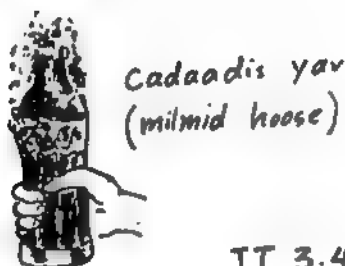 Cadaadis yar
(milmid hoose)
TT 3.4